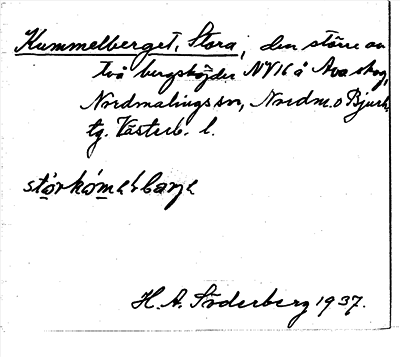 Kummelberget, Stora, den större av
två bergshöjder NV16 å Ava skog,
Nordmalings sn, Nordm. o Bjurh.
tg. Västerb. l.
H. A. Söderberg 1937.